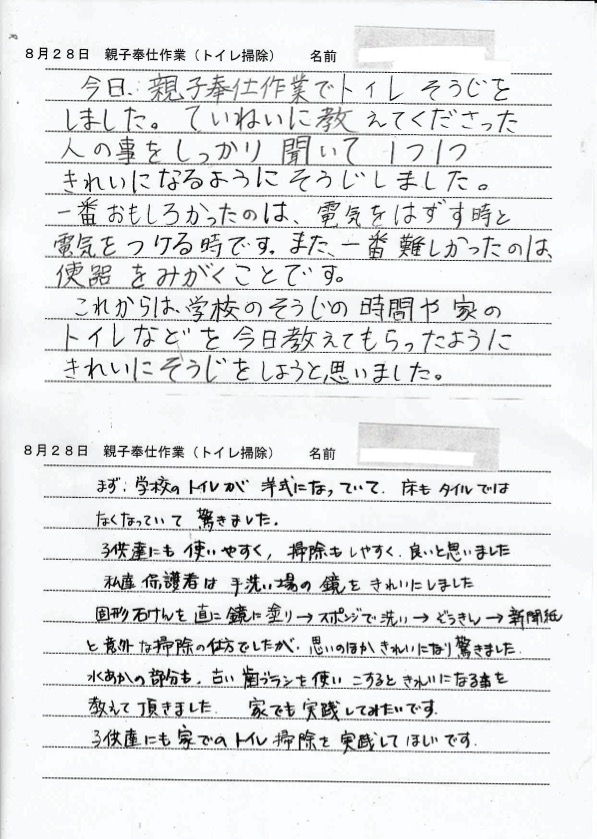 8月28日　親子奉仕作業（トイレ掃除）　　名前
今日、親子奉仕作業でトイレそうじを
しました。ていねいに教えてくださった
人の事をしっかり聞いて1つ1つ
きれいになるようにそうじしました。
一番おもしろかったのは、電気をはずす時と
電気をつける時です。また、一番難しかったのは、
便器をみがくことです。
これからは、学校のそうじの時間や家の
トイレなどを今日教えてもらったように
きれいにそうじをしようと思いました。
8月28日　親子奉仕作業（トイレ掃除）　　名前
まず、学校のトイレが洋式になっていて、床もタイルでは
なくなっていて驚きました。
子供達にも使いやすく、掃除もしやすく、良いと思いました
私達保護者は手洗い場の鏡をきれいにしました
固形石けんを直に鏡に塗り→スポンジで洗い→ぞうきん→新聞紙
と意外な掃除の仕方でしたが、思いのほかきれいになり驚きました。
水あかの部分も、古い歯ブラシを使いこするときれいになる事を
教えて頂きました。　家でも実践してみたいです。
子供達にも家でのトイレ掃除を実践してほしいです。